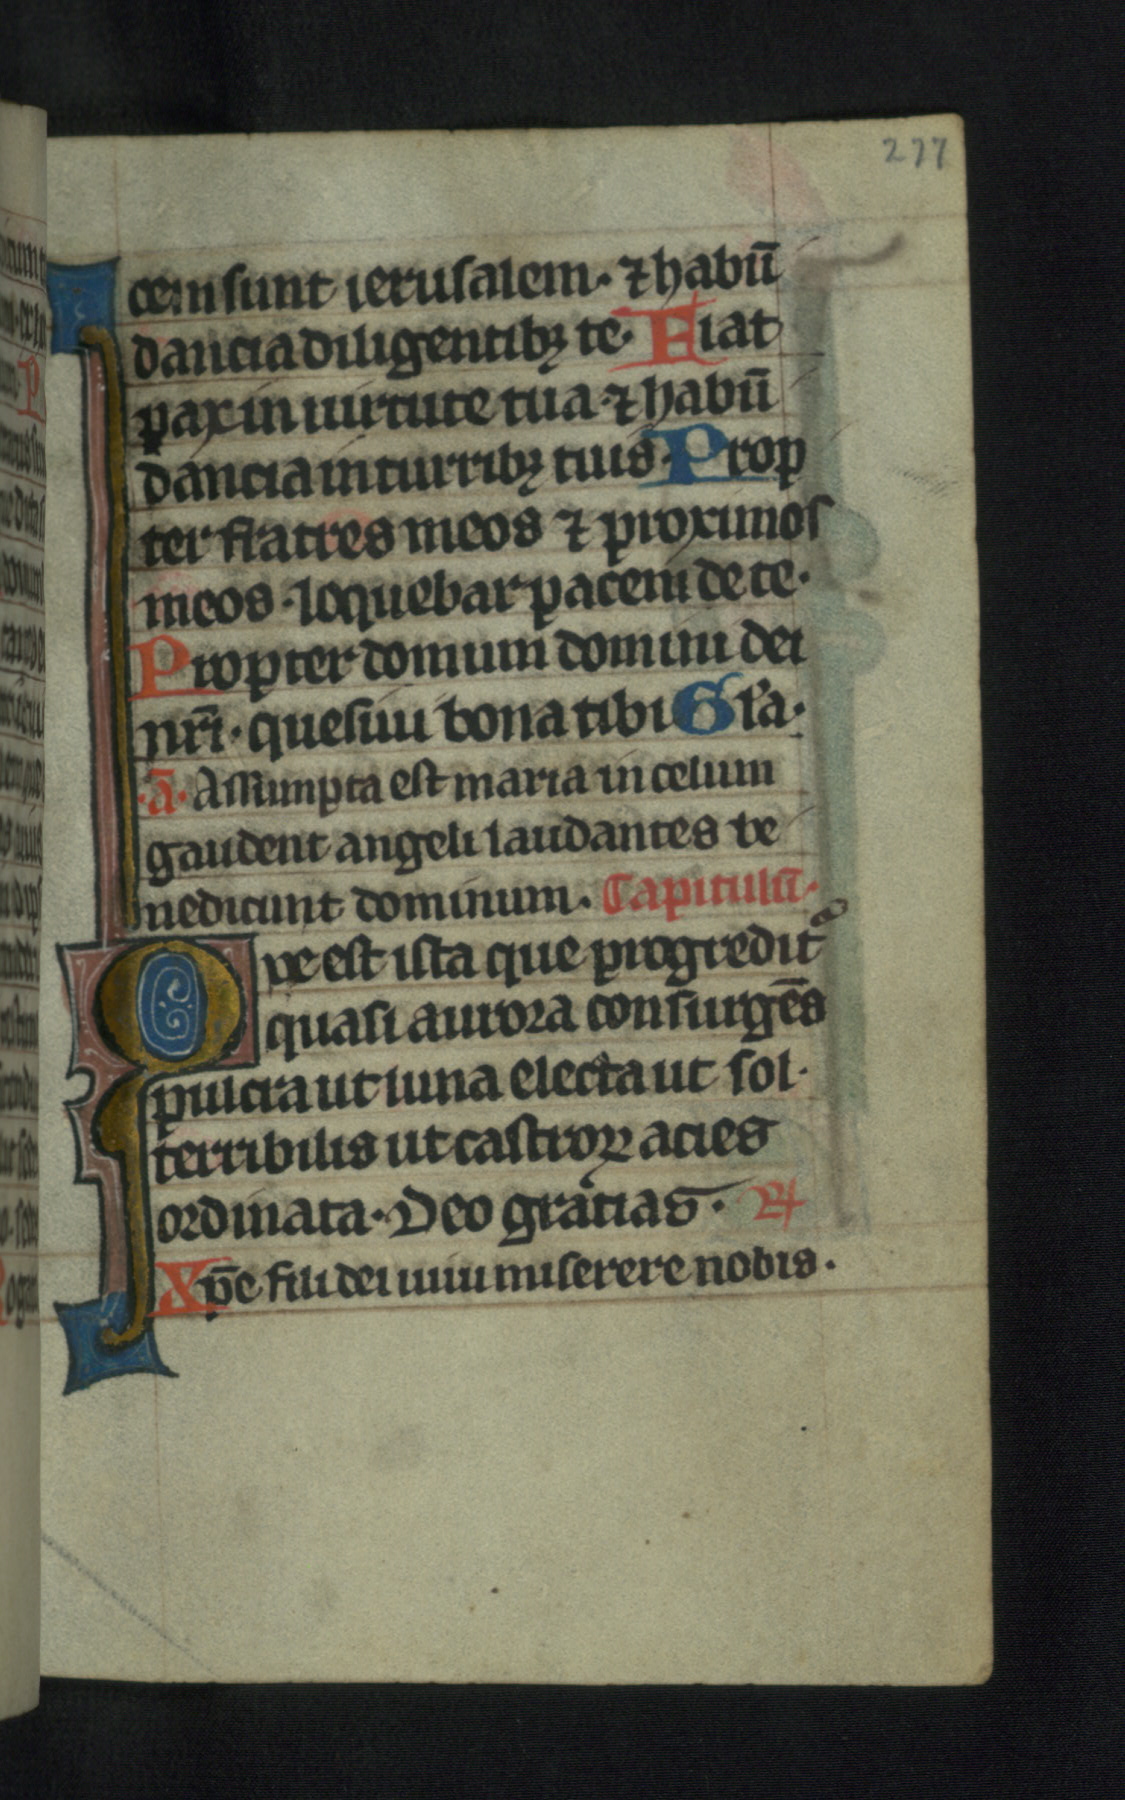 277
cem sunt ierusalem· ⁊ habū
dancia diligentibꝫ te· Fiat
pax in uirtute tua· ⁊ habū
dancia in turribꝫ tuis· Prop
ter fratres meos ⁊ proximos
meos· loquebar pacem de te·
Propter domum domini dei
nr̄i· quesiui bona tibi Gl'a·
·ā· Assumpta est maria in celum
gaudent angeli laudantes be
nedicunt dominum· Capitulū·
Que est ista que progredit᷑
quasi aurora consurgēs
pulcra ut luna electa ut sol·
terribilis ut castroꝝ acies
ordinata· Deo gratias· ℟
Xp̄e fili dei uiui miserere nobis·